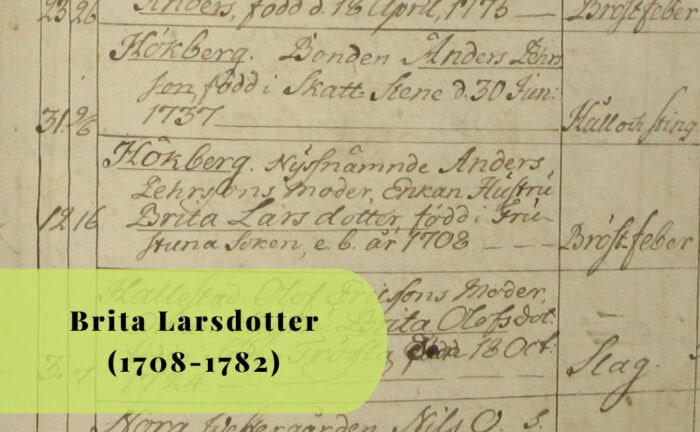 23 26 Anders, född d. 18 April, 1775 — Bröstfeber
Hökberg. Bonden Anders Pehrs
son, född i Skatt-Stene d. 30 Jun:
31 26 1737 Håll och sting
Hökberg. Nyssnämnde Anders
Pehrssons Moder, Enkan Hustru
12 16 Brita Lars dotter, född i Grü-
stuna Soken, e. b. år 1708 — — — Bröstfeber
Hallestad. Olof Ericssons Moder,
Brita Olofsdot.
3. 7. 18 Oct. Slag.
1724
Nora Nils O. S.
Brita Larsdotter
(1708-1782)